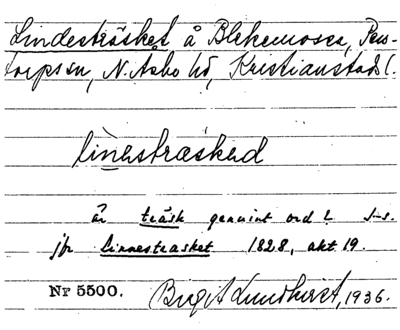 Lindesträsket å Blekemosse, Pers-
torps sn, N. Åsbo hd, Kristianstads l.
li̱nestræskəd
är träsk genuint ord?
jfr Linnestrasket 1828, akt 19.
Nr 5500. Birgit Lundkvist, 1936.